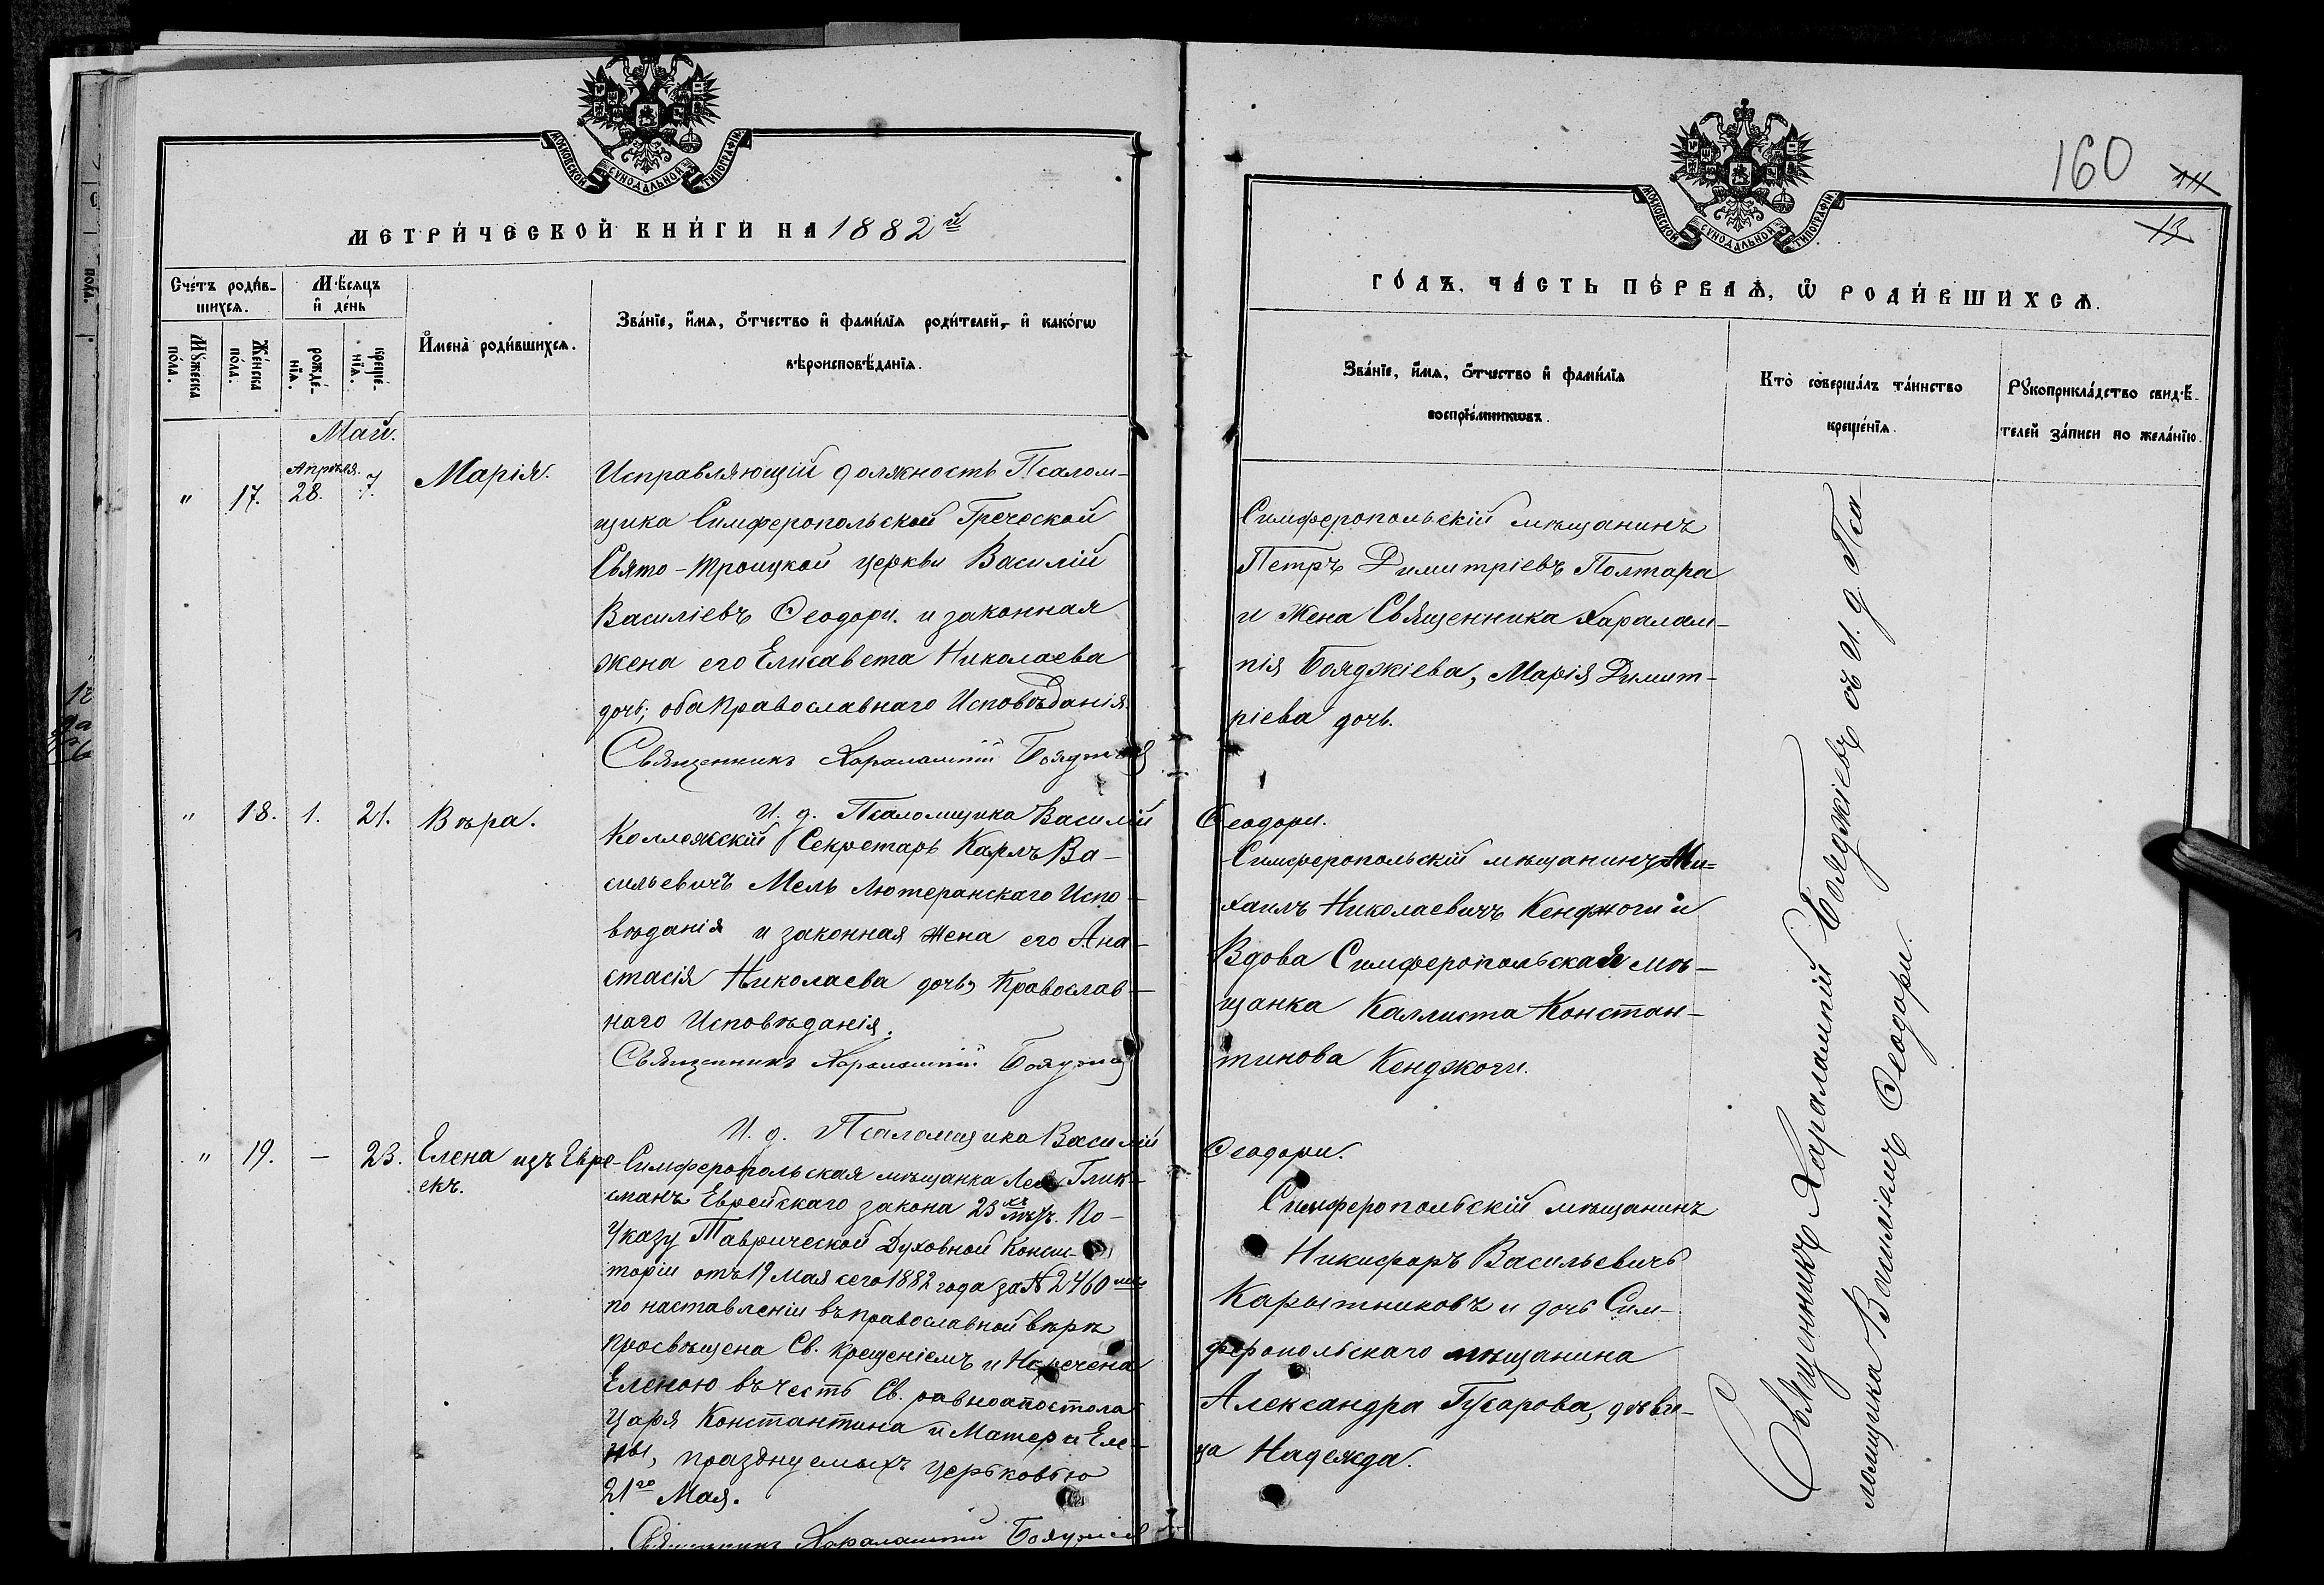 МОСКОВСКОЙ СѴНОДАЛЬНОЙ ТИПОГРАФІИ.
МЕТРИ́ЧЕСКОЙ КНИ́ГИ НА 1882 й
Сче́тъ роди́в-
шихся.
Мѣ́сяцъ
и де́нь
Мꙋ́жеска
по́ла.
Же́нска
по́ла.
рожде́-
нїѧ.
креще́-
нїѧ.
И҆мена̀ роди́вшихсѧ.
Зва́нїе, и҆́мѧ, ѻ҆́тчество и҆ фами́лїѧ роди́телей, и҆ како́гѡ
вѣроисповѣ́данїѧ.
Май.
" 17. Апрѣля 28. 7. Марія.
Исправляющій должность Псалом-
щика Симферопольской Греческой
Свято-Троицкой церкви Василій
Василіевъ Ѳеодори. и законная
жена его Елисавета Николаева
дочь; оба православнаго Исповѣданія.
Священникъ Харалампій Бояджіев
И. д. Псаломщика Василій
" 18. 1. 21. Вѣра.
Коллежскій Секретарь Карлъ Ва-
сильевичъ Мель Лютеранскаго Испо-
вѣданія и законная жена его Ана-
стасія Николаева дочь, Православ-
наго Исповѣданія.
Священникъ Харалампій Бояджіев
И. д. Псаломщика Василій
" 19. – 23. Елена изъ Евре-
екъ.
Симферопольская мѣщанка Лея Глик-
сманъ Еврейскаго закона 23 хъ лѣтъ. По-
Указу Таврической Духовной Конси-
торіи отъ 19 Мая сего 1882 года за № 2460 мъ
по наставленіи въ православной вѣрѣ
просвѣщена Св. крещеніемъ и Наречена
Еленою въ честь Св. равноапостола
Царя Константина и Матери Еле-
ны, празднуемыхъ Церьковью
21го Мая.
Священникъ Харалампій Бояджіев
160
14
13
МОСКОВСКОЙ СѴНОДАЛЬНОЙ ТИПОГРАФІИ.
ГО́ДЪ. ЧА́СТЬ ПЕ́РВАѦ, Ѡ҆ РОДИ́ВШИХСѦ.
Зва́нїе, и҆́мѧ, ѻ҆́тчество и҆ фами́лїѧ
воспрїе́мникѡвъ.
Кто̀ соверша́лъ та́инство
креще́нїѧ.
Рꙋкоприкла́дство свидѣ́-
телей за́писи по жела́нїю.
Симферопольскій мѣщанинъ
Петръ Димитріевъ Полтара
и жена Священника Харалам-
пія Бояджіева, Марія Димит-
ріева дочь.
Ѳеодори.
Симферопольскій мѣщанинъ Ми-
хаилъ Николаевичъ Кенджоги и
Вдова Симферопольская мѣ-
щанка Каллиста Констан-
тинова Кенджоги.
Ѳеодори.
Симферопольскій мѣщанинъ
Никифоръ Васильевичъ
Карытниковъ и дочь Сим-
феропольскаго мѣщанина
Александра Гусарова, дѣви-
ца Надежда.
Священникъ Харалампій Бояджіевъ съ И. д. Пса-
ломщика Василіемъ Ѳеодори.